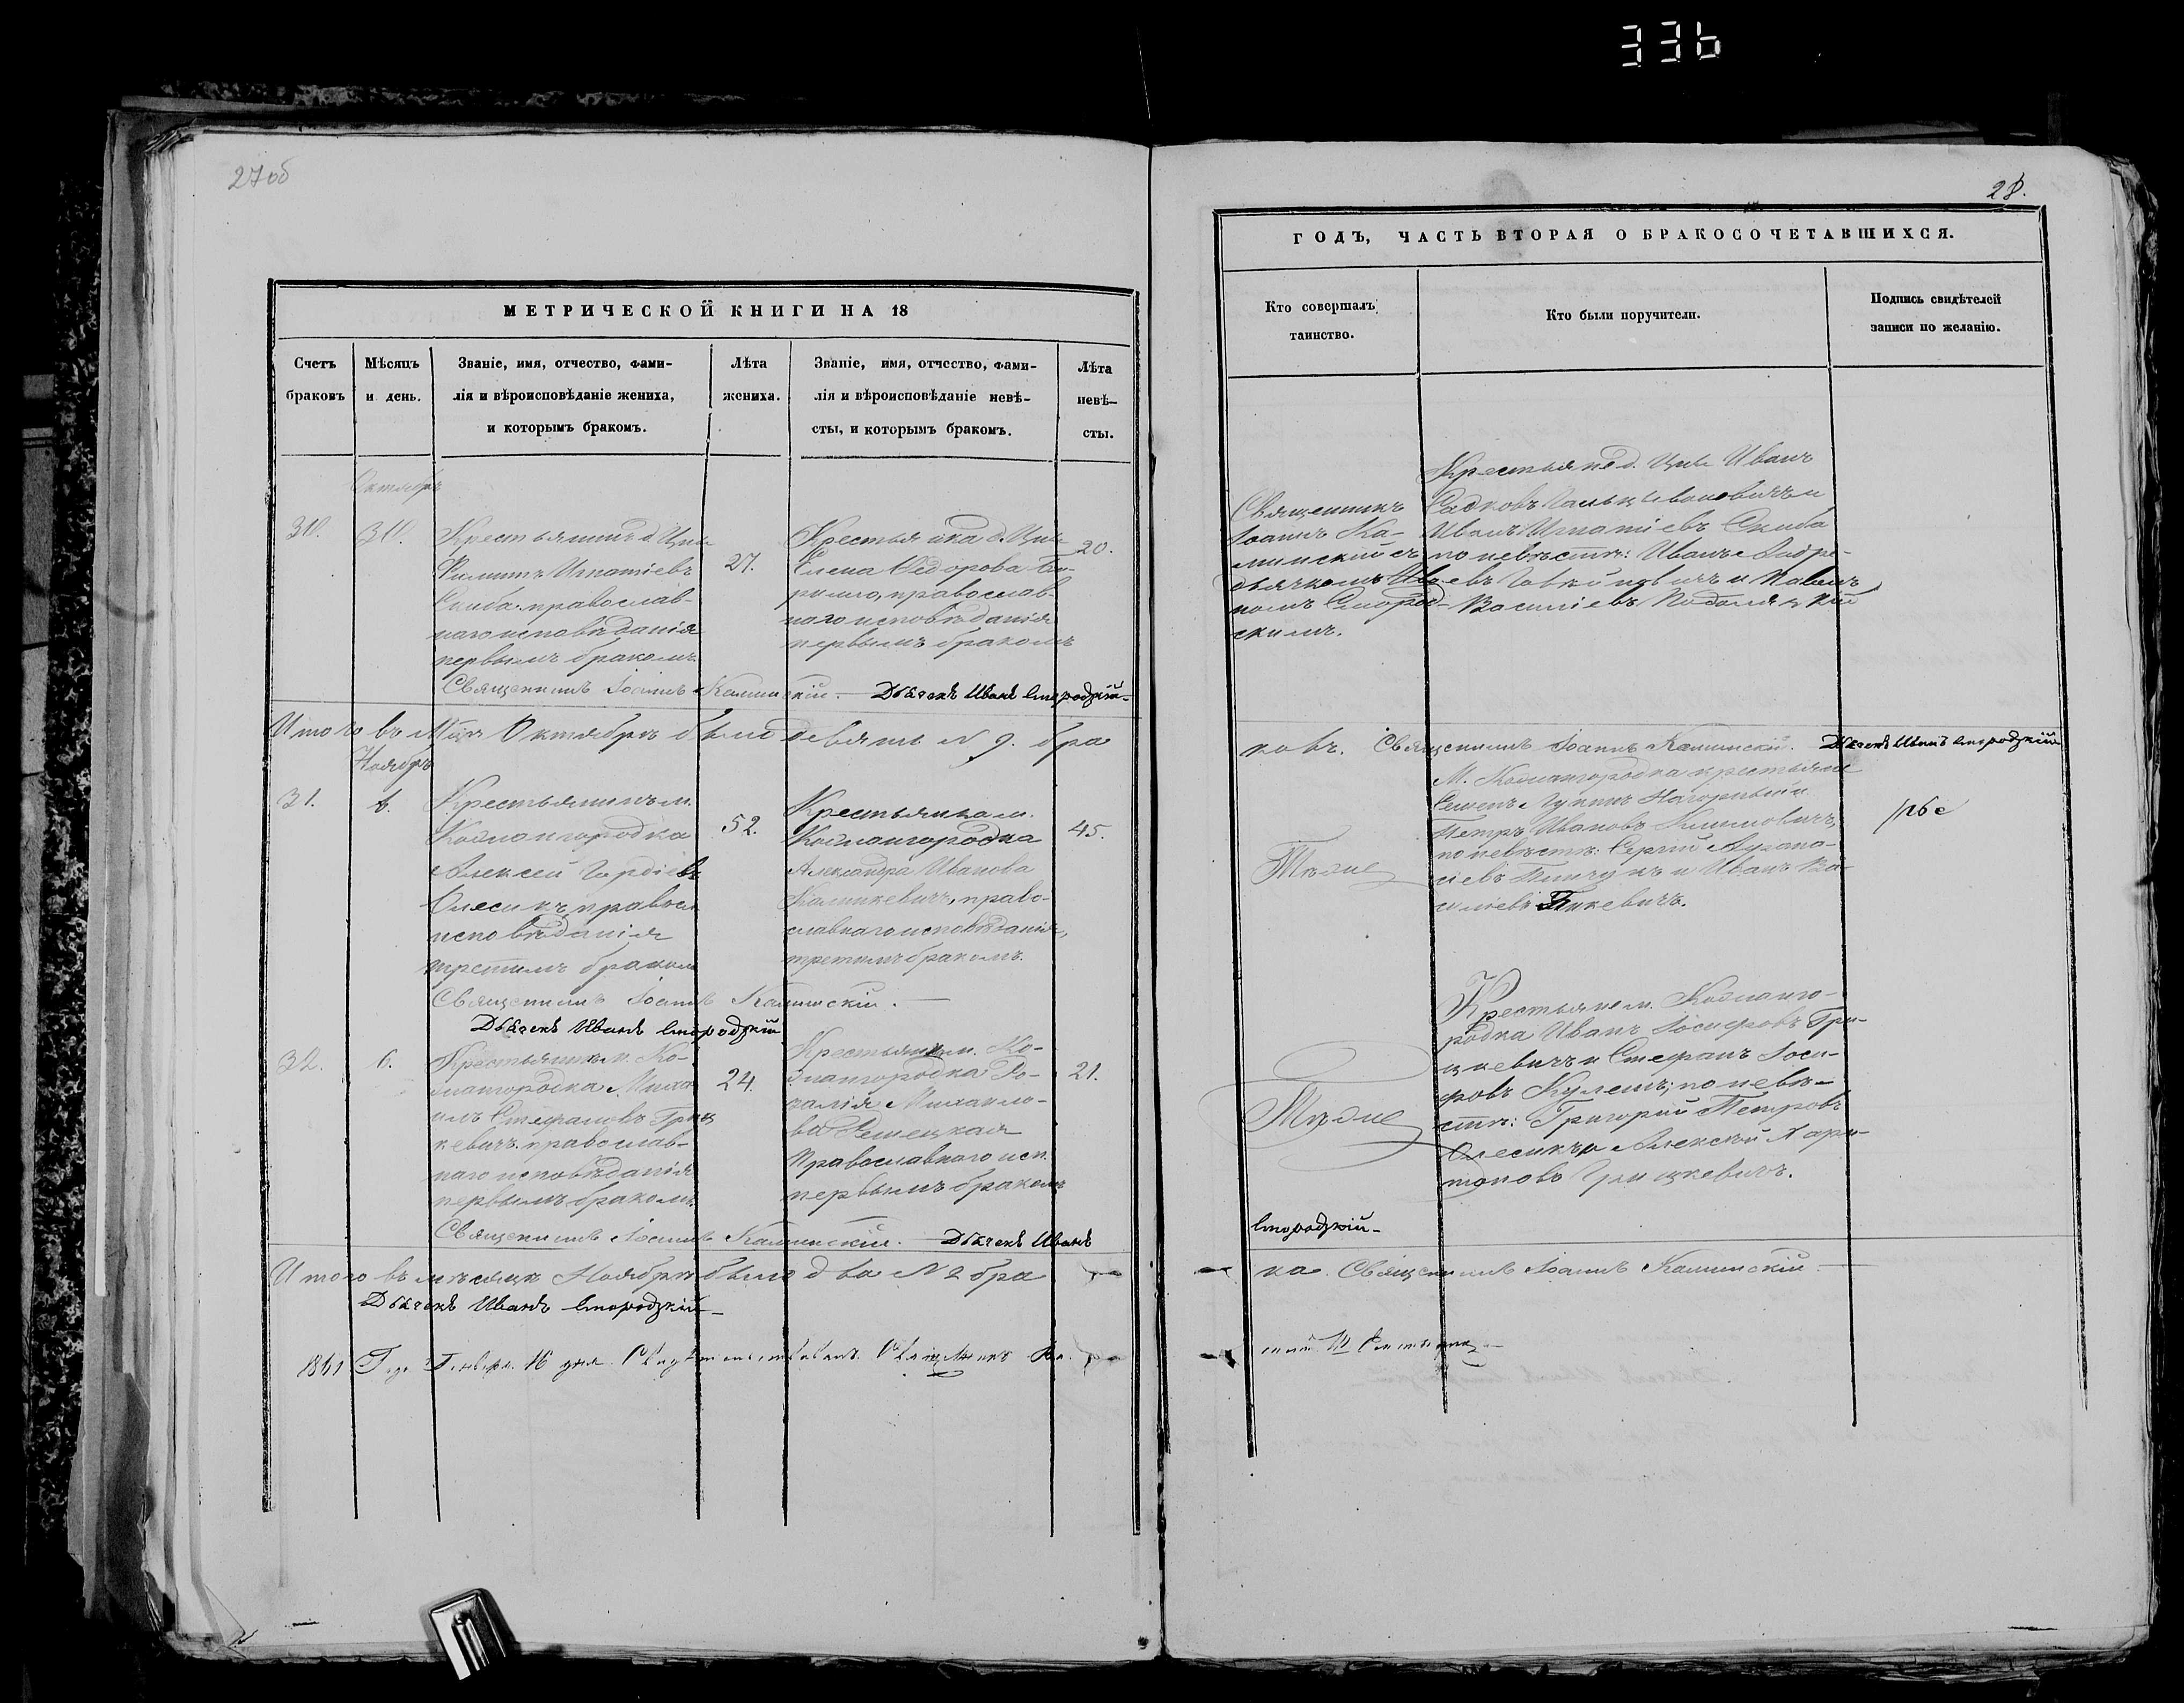 336
27 об
МЕТРИЧЕСКОЙ КНИГИ НА 18
Счетъ
браковъ
Мѣсяцъ
и день.
Званіе, имя, отчество, фами-
лія и вѣроисповѣданіе жениха,
и которымъ бракомъ.
Лѣта
жениха.
Званіе, имя, отчество, фами-
лія и вѣроисповѣданіе невѣ-
сты, и которымъ бракомъ.
Лѣта
невѣ-
сты.
Октябрь
30.
30.
Крестьянинъ д. Цна
Филипъ Игнатіевъ
Скиба православ-
наго исповѣданія
первымъ бракомъ
27.
Крестьянка д. Цна
Елена Ѳедорова
православ-
наго исповѣданія
первымъ бракомъ
20.
Священникъ Іоаннъ Калинскій. Дьячекъ Иванъ Смородзкій
Итого въ М-цѣ Октябрѣ было девять N 9. бра
Ноябрь
31.
6.
Крестьянинъ м.
Кожангородка
Алексей Гордіевъ
Олесикъ, правосл
исповѣданія
третимъ бракомъ
52.
Крестьянка м.
Кожангородка
Александра Иванова
Калинкевичъ, право-
славнаго исповѣданія,
третимъ бракомъ.
45.
Священникъ Іоаннъ Калинскій.
Дьячекъ Иванъ Смородзкій
32.
6.
Крестьянинъ м. Ко-
жангородка Миха
илъ Стефановъ Гриц
кевичъ православ-
наго исповѣданія
первымъ бракомъ.
24.
Крестьянка м. Ко-
жангородка Ро-
залія Михайло-
ва
Православнаго исп.
первымъ бракомъ
21.
Священникъ Іоаннъ Калинскій. Дьячекъ Иванъ
Итого въ мѣсяцѣ Ноябрѣ было два N 2 бра
Дьячекъ Иванъ Смородзкій
Генваря 16 дня. Свидѣтельствовалъ
28.
ГОДЪ, ЧАСТЬ ВТОРАЯ О БРАКОСОЧЕТАВШИХСЯ.
Кто совершалъ
таинство.
Кто были поручители.
Подпись свидѣтелей
записи по желанію.
Священникъ
Іоаннъ Ка-
линскій съ
дьячкомъ Ива
номъ Смород-
скимъ.
Крестьяне д. Цна Иванъ
Иванъ Игнатіевъ Скиба
по невѣстѣ: Иванъ Андре-
евъ и Павелъ
Василіевъ
ковъ. Священникъ Іоаннъ Калинскій. Дьячекъ Иванъ Смородзкій
Тѣже
М. Кожангородка крестьяне
Семенъ
Петръ Ивановъ Климовичъ,
по невѣстѣ: Сергій Афана-
сіевъ Пинчукъ и Иванъ Ва-
силіевъ
Тѣже
Крестьяне м. Кожанго-
родка Иванъ Іосифовъ Гри-
цкевичъ и Стефанъ Іоси-
фовъ Кулешъ; по невѣ-
стѣ: Григорій Петровъ
Олесикъ и Алексей Хари-
тоновъ Грицкевичъ.
Смородзкій
ка. Священникъ Іоаннъ Калинскій